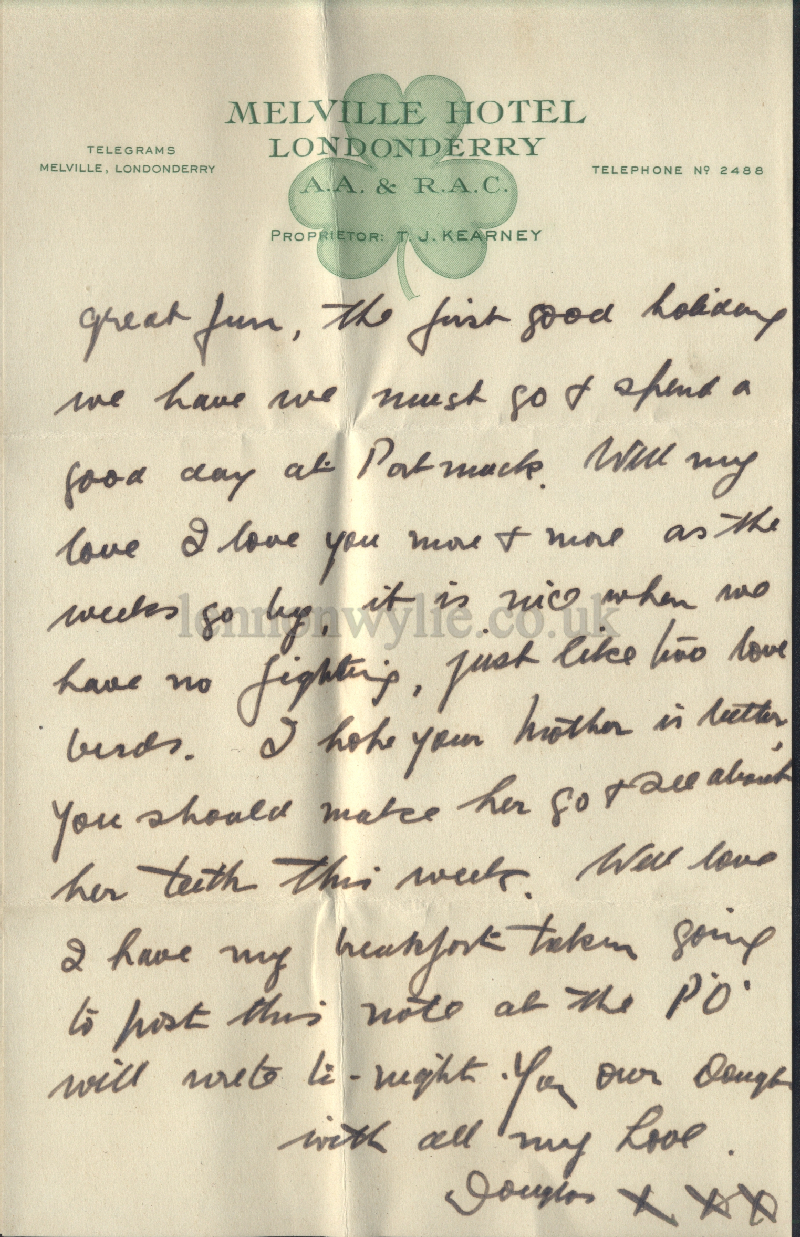 MELVILLE HOTEL
LONDONDERRY
TELEGRAMS
MELVILLE, LONDONDERRY
A.A. & R.A.C.
TELEPHONE Nº 2488
PROPRIETOR: T. J. KEARNEY
great fun, the first good holiday
we have we must go & spend a
good day at Portmuck. Well my
love I love you more & more as the
weeks go by, it is nice when we
have no fighting, just like two love
birds. I hope your Mother is better,
you should make her go & see about
her teeth this week. Well love
I have my breakfast taken going
to post this note at the P.O.
will write to-night. Your own Douglas
with all my love.
Douglas X X X
lennonwylie.co.uk